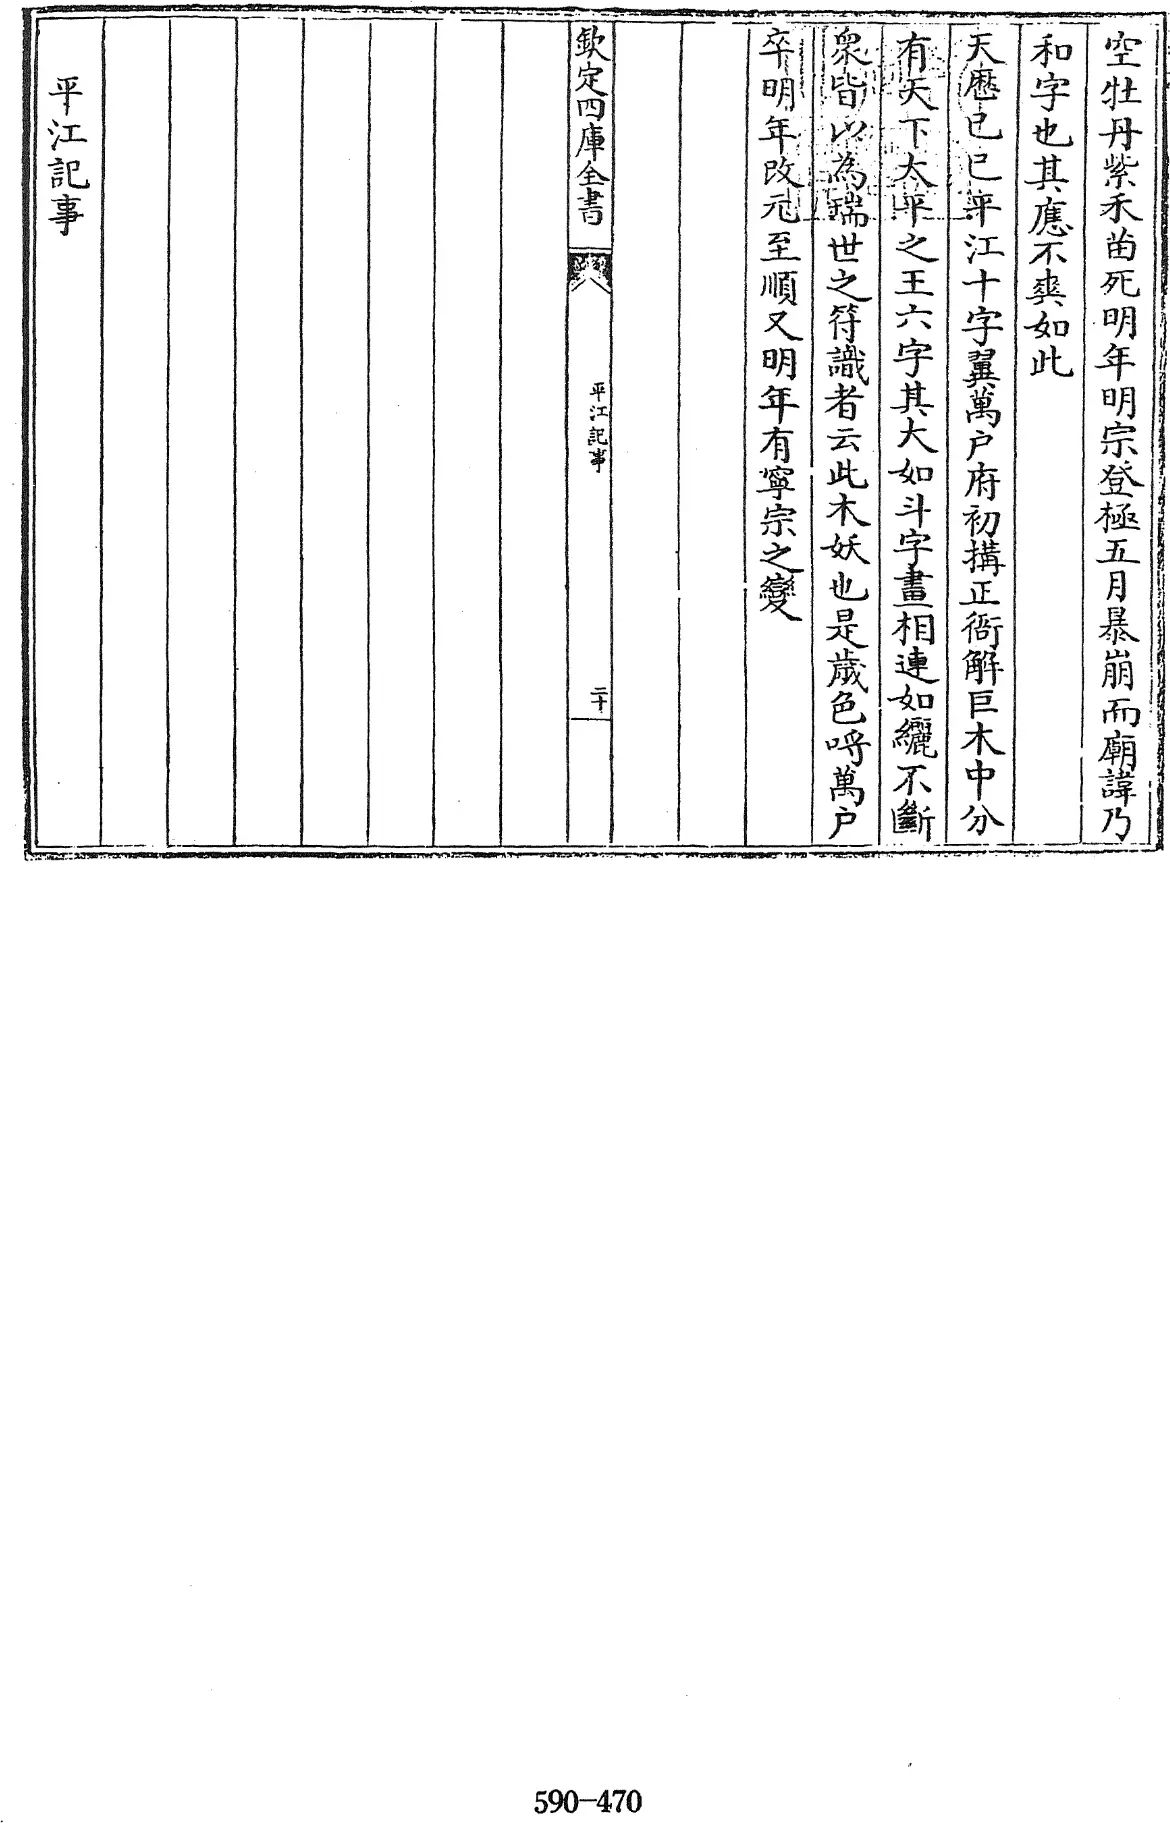 空牡丹紫禾苗死明年明宗登極五月暴崩而廟諱乃
和字也其應不爽如此
天歴已巳平江十字翼萬户府初搆正衙解巨木中分
有天下太平之王六字其大如斗字畫相連如纚不斷
衆皆以為瑞世之符識者云此木妖也是歲色呼萬户
卒明年改元至順又明年有寧宗之變
欽定四庫全書
平江記事
二十
平江記事
590-470